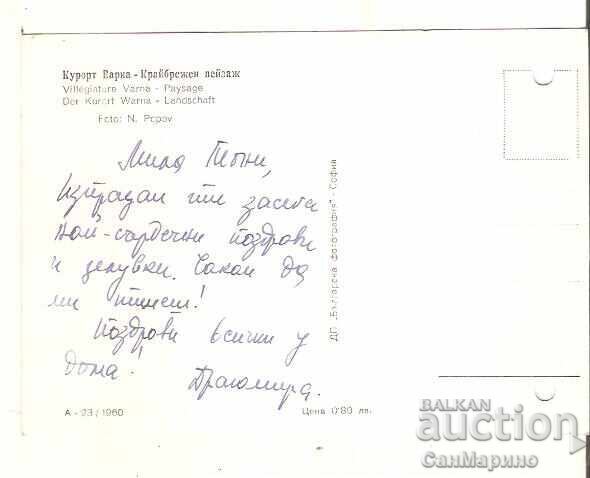 Курорт Варна - Крайбрежен пейзаж
Villegiature Varna - Paysage
Der Kurort Warna - Landschaft
Foto: N. Popov
Мила Пепи,
Изпращам ти засега
най-сърдечни поздрави
и целувки. Чакам да
ми пишеш!
Поздрави всички у
дома!
Драгомира.
ДП „Българска фотография" - София
А - 23 / 1960
Цена 0'80 лв.
BALKAN
auction
СанМарино